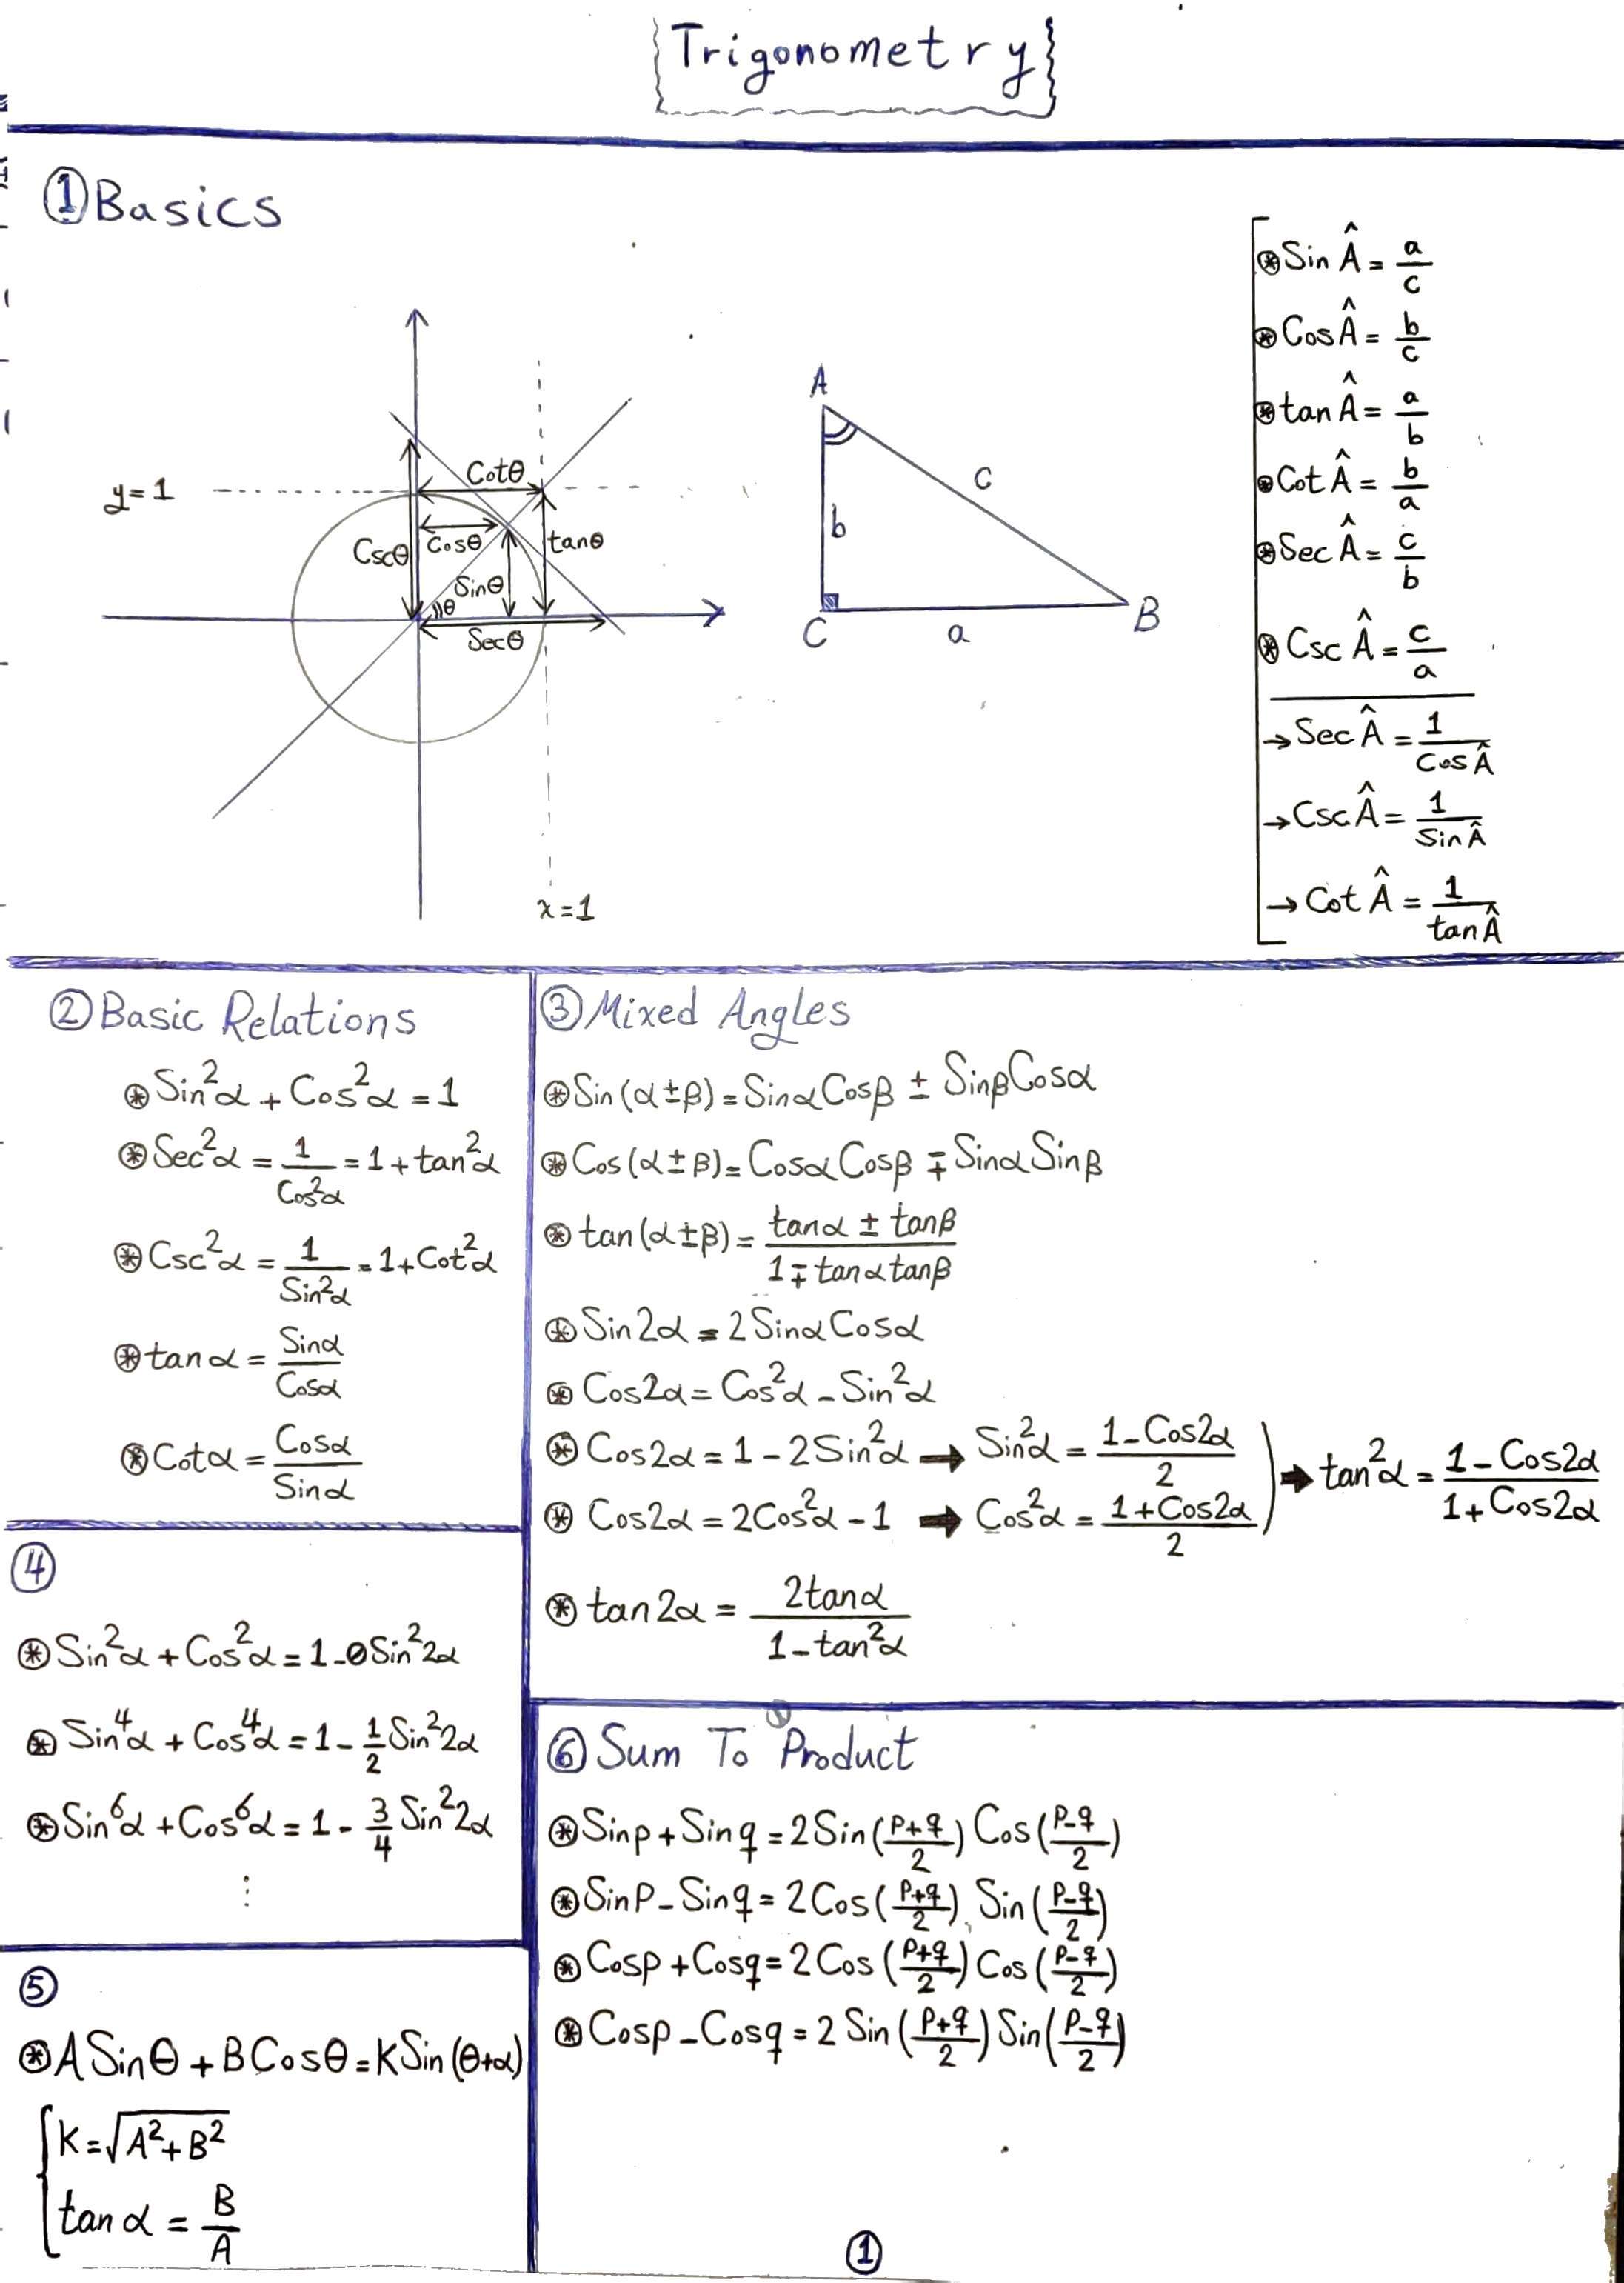 Trigonometry
① Basics
y=1
Cotθ
Cscθ
Cosθ
tanθ
Sinθ
θ
Secθ
x=1
A
b
c
C
a
B
⊛ Sin Â = a/c
⊛ Cos Â = b/c
⊛ tan Â = a/b
⊛ Cot Â = b/a
⊛ Sec Â = c/b
⊛ Csc Â = c/a
→ Sec Â = 1/Cos Â
→ Csc Â = 1/Sin Â
→ Cot Â = 1/tan Â
② Basic Relations
⊛ Sin²α + Cos²α = 1
⊛ Sec²α = 1/Cos²α = 1 + tan²α
⊛ Csc²α = 1/Sin²α = 1 + Cot²α
⊛ tan α = Sinα/Cosα
⊛ Cotα = Cosα/Sinα
③ Mixed Angles
⊛ Sin(α±β) = SinαCosβ ± SinβCosα
⊛ Cos(α±β) = CosαCosβ ∓ SinαSinβ
⊛ tan(α±β) = (tanα ± tanβ)/(1 ∓ tanα tanβ)
⊛ Sin2α = 2SinαCosα
⊛ Cos2α = Cos²α - Sin²α
⊛ Cos2α = 1 - 2Sin²α → Sin²α = (1 - Cos2α)/2
⊛ Cos2α = 2Cos²α - 1 → Cos²α = (1 + Cos2α)/2
) → tan²α = (1 - Cos2α)/(1 + Cos2α)
⊛ tan2α = 2tanα/(1 - tan²α)
④
⊛ Sin²α + Cos²α = 1 - 0Sin²2α
⊛ Sin⁴α + Cos⁴α = 1 - 1/2 Sin²2α
⊛ Sin⁶α + Cos⁶α = 1 - 3/4 Sin²2α
⋮
⑤
⊛ ASinθ + BCosθ = KSin(θ+α)
K = √(A²+B²)
tan α = B/A
⑥ Sum To Product
⊛ Sinp + Sinq = 2Sin((p+q)/2) Cos((p-q)/2)
⊛ Sinp - Sinq = 2Cos((p+q)/2) Sin((p-q)/2)
⊛ Cosp + Cosq = 2Cos((p+q)/2) Cos((p-q)/2)
⊛ Cosp - Cosq = 2Sin((p+q)/2) Sin((p-q)/2)
①